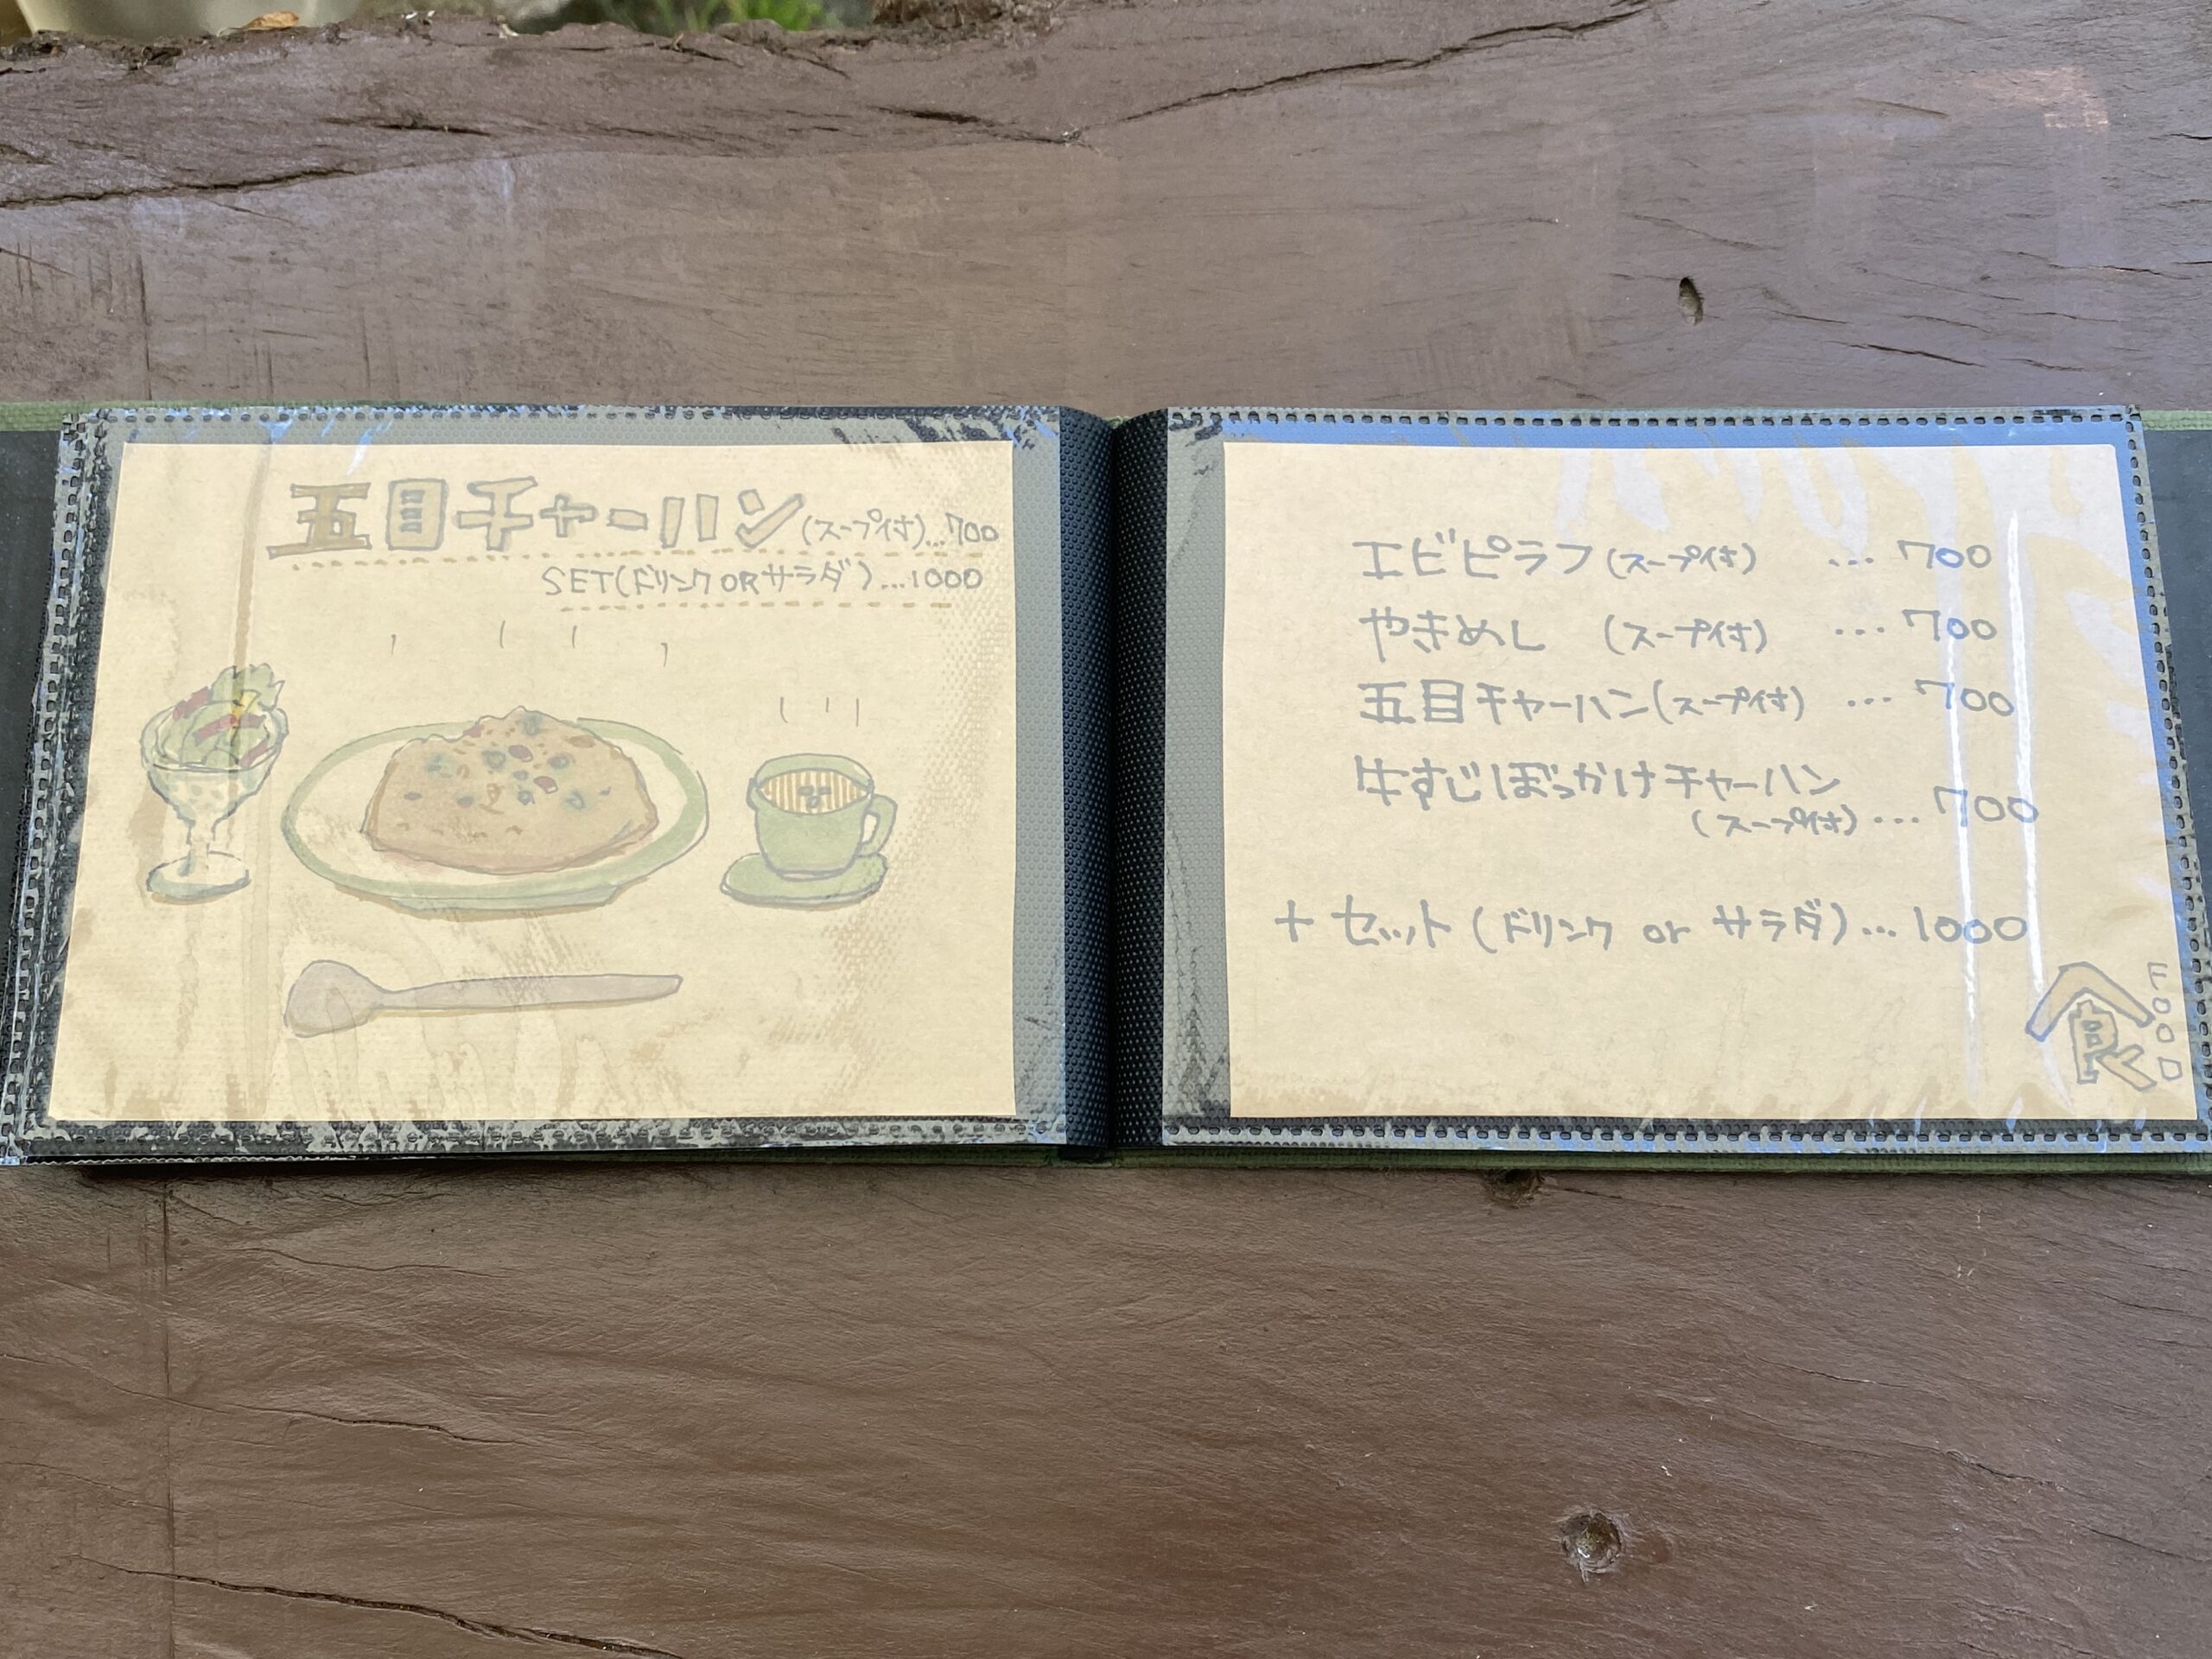 五目チャーハン(スープ付)…700
SET(ドリンクORサラダ)…1000
エビピラフ(スープ付) …700
やきめし (スープ付) …700
五目チャーハン(スープ付) …700
牛すじぼっかけチャーハン
(スープ付)…700
+セット(ドリンク or サラダ)…1000
食
FOOD